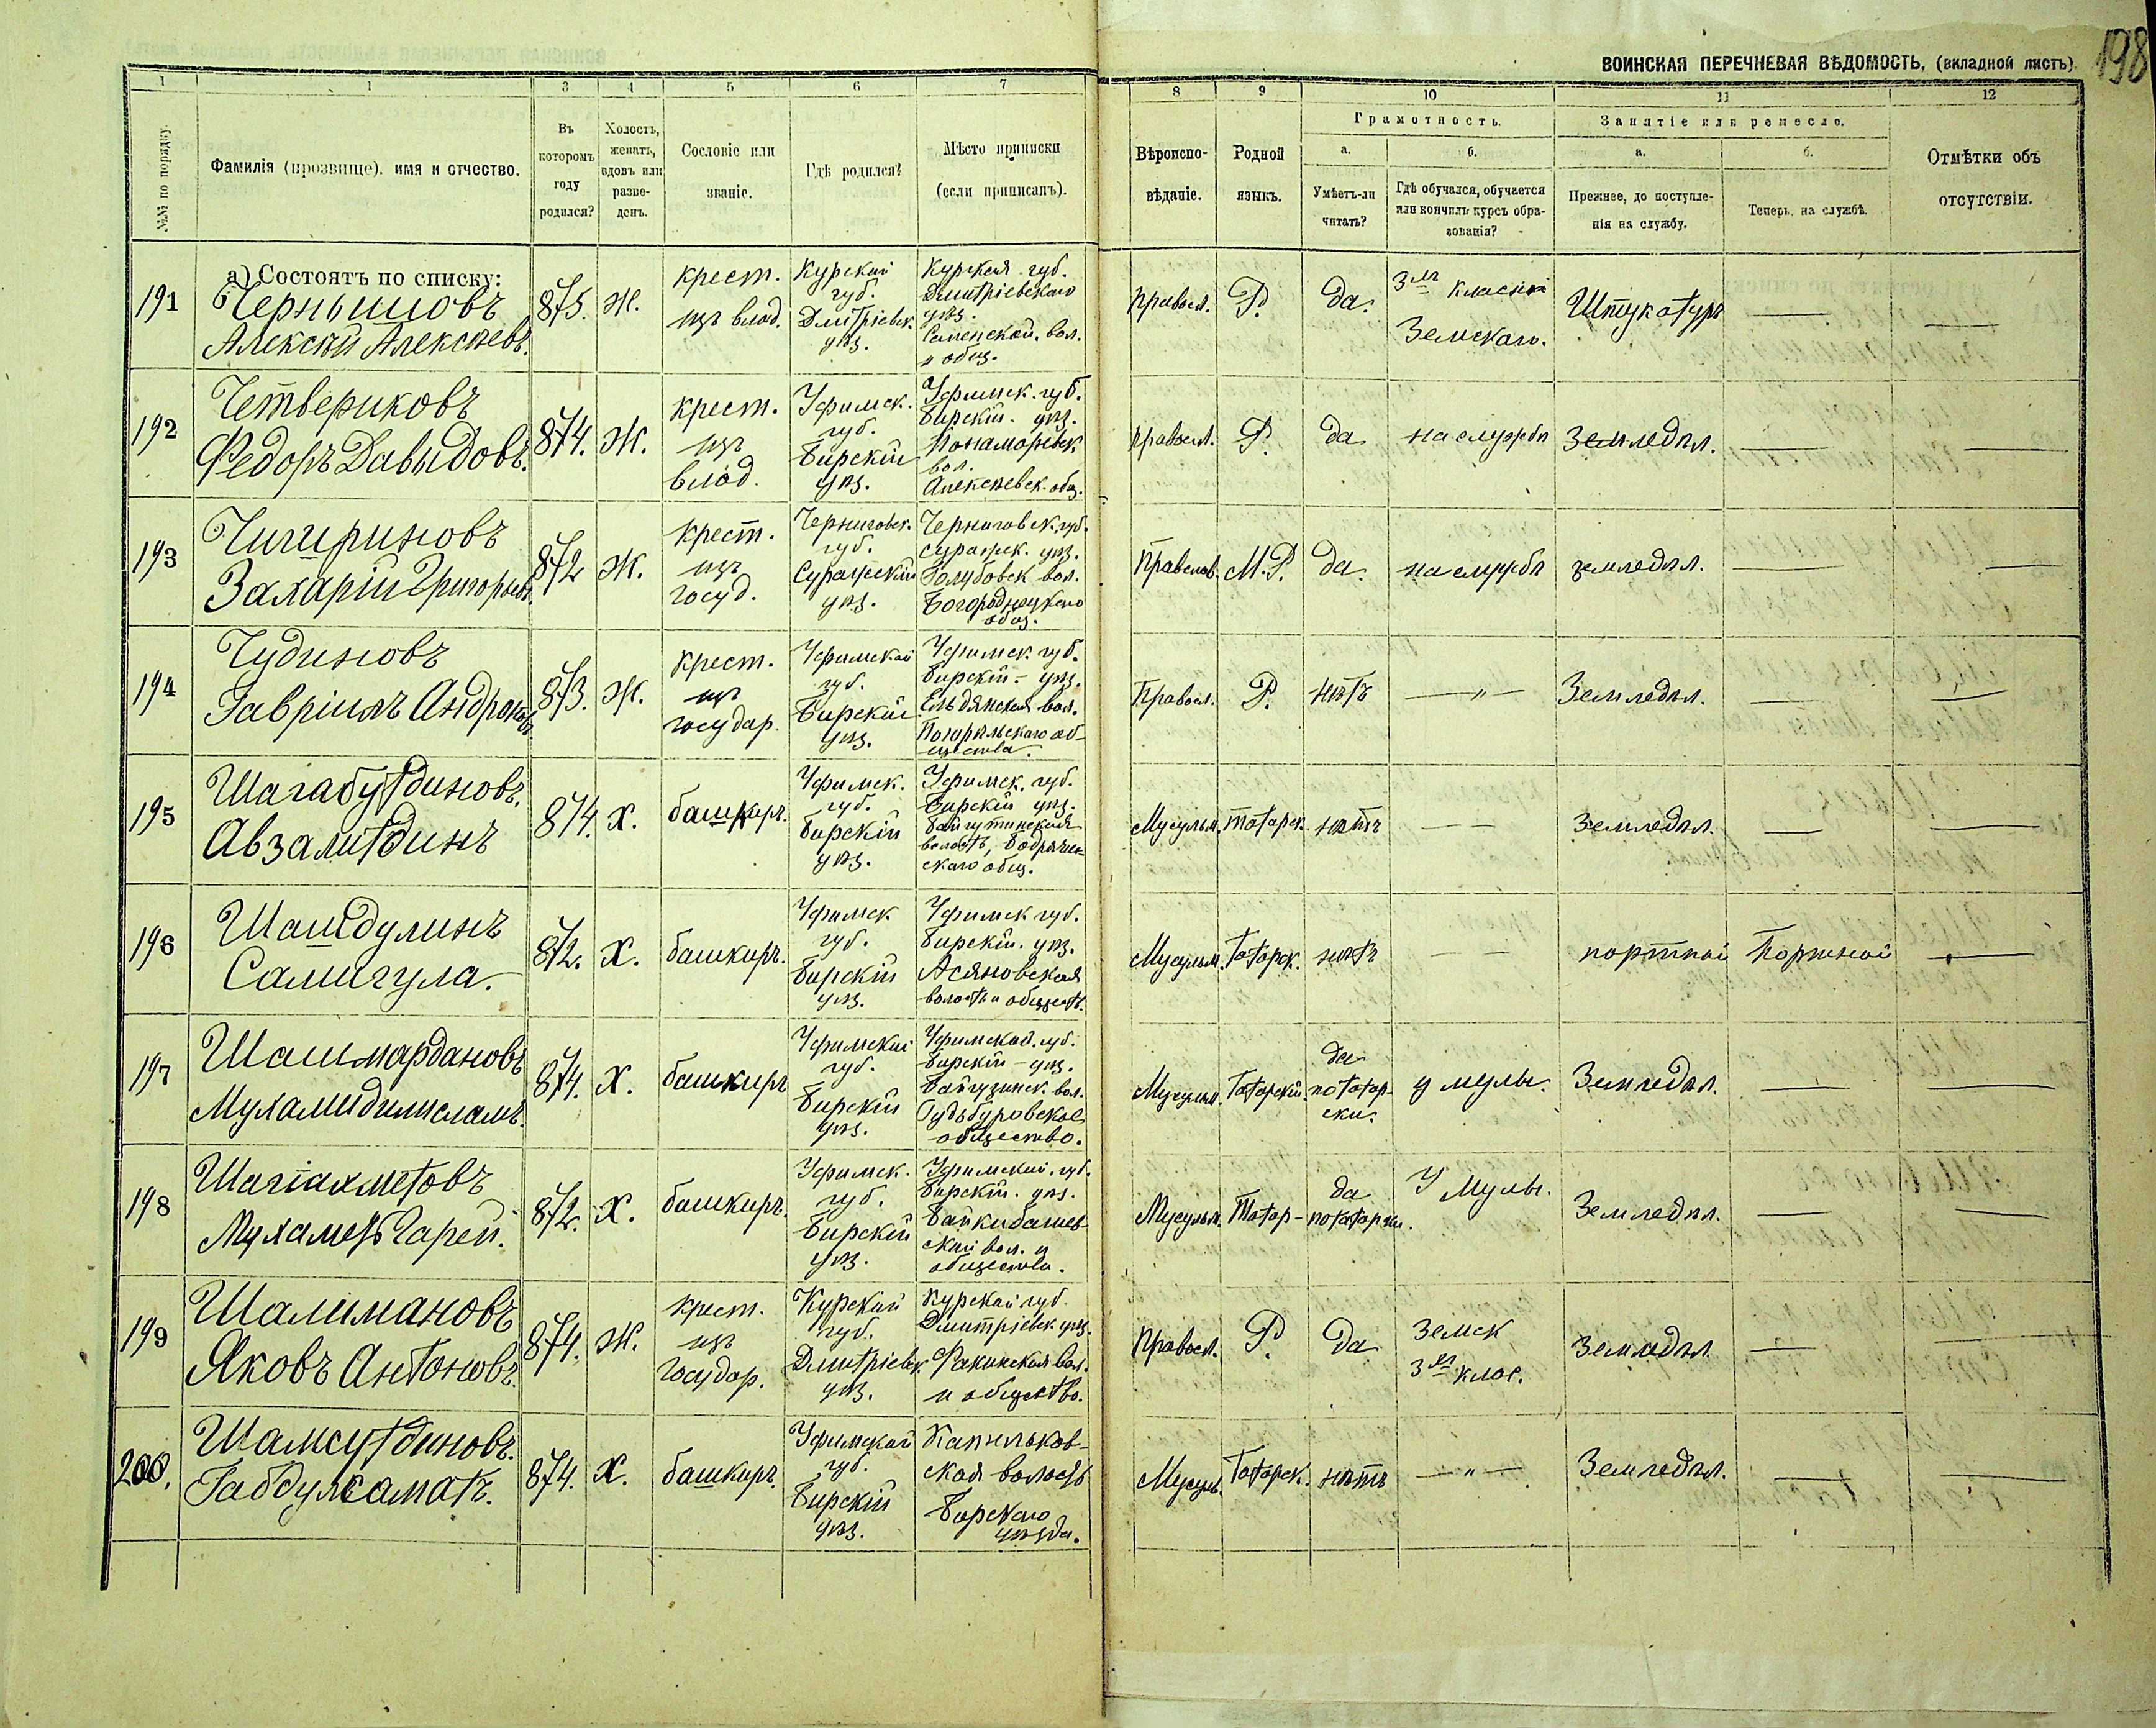 ВОИНСКАЯ ПЕРЕЧНЕВАЯ ВѢДОМОСТЬ, (вкладной листъ).
198
1 1 3 4 5 6 7 8 9 10 11 12
№№ по порядку.
Фамилія (прозвище), имя и отчество.
Въ которомъ году родился?
Холостъ, женатъ, вдовъ или разведенъ.
Сословіе или званіе.
Гдѣ родился?
Мѣсто приписки (если приписанъ).
Вѣроисповѣданіе.
Родной языкъ.
Грамотность.
а. Умѣетъ-ли читать?
б. Гдѣ обучался, обучается или кончилъ курсъ образованія?
Занятіе или ремесло.
а. Прежнее, до поступленія на службу.
б. Теперь, на службѣ.
Отмѣтки объ отсутствіи.
а) Состоятъ по списку:
191 Чернышовъ Алексѣй Алексѣевъ. 875. Ж. крест. изъ влад. Курской губ. Дмитріевск. уѣз. Курская губ. Дмитріевскаго уѣз. вол. и общ. Правосл. Р. да. 3хъ класн Земскаго. Штукатуръ — —
192 Четвериковъ Федоръ Давыдовъ. 874. Ж. крест. изъ влад. Уфимск. губ. Бирскій уѣз. Уфимск. губ. Бирскій уѣз. Понаморевск. вол. Алексѣевск. общ. Правосл. Р. да на службѣ Земледѣл. — —
193 Чигириновъ Захарій Григорьевъ. 872 Ж. крест. изъ госуд. Черниговск. губ. Суражскій уѣз. Черниговск. губ. суражск. уѣз. Голубовск. вол. Богородицкаго общ. Правослов. М.Р. да. на службѣ земледѣл. — —
194 Чудиновъ Гавріилъ Андроновъ 873. Ж. крест. изъ государ. Уфимской губ. Бирскій уѣз. Уфимск. губ. Бирскій - уѣз. Ельдякская вол. Погорѣльскаго общества. Правосл. Р. нѣтъ — " — Земледѣл. — —
195 Шагабутдиновъ. Авзалитдинъ 874. Х. башкиръ. Уфимск. губ. Бирскій уѣз. Уфимск. губ. Бирскій уѣз. волость, скаго общ. Мусульм. татарск. нѣтъ — — Земледѣл. — —
196 Шашдулинъ Самигула. 872. Х. башкиръ. Уфимск губ. Бирскій уѣз. Уфимск губ. Бирскій. уѣз. Асяновская волость и обществ. Мусульм. Татарск. нѣтъ — — портной Портной —
197 Шашмардановъ Мухамидилисламъ. 874. Х. башкиръ Уфимской губ. Бирскій уѣз. Уфимской. губ. Бирскій - уѣз. Байгузинск. вол. общество. Мусульм. Татарскій. да по татарски. у мулы Земледѣл. — —
198 Шагіахметовъ Мухаметъ Гарей. 872. Х. башкиръ. Уфимск. губ. Бирскій уѣз. Уфимской. губ. Бирскій. уѣз. Байкибашевской вол. и общества. Мусульм. Татар- да по татарски. У Мулы. Земледѣл. — —
199 Шалимановъ Яковъ Антоновъ. 874. Ж. крест. изъ государ. Курской губ. Дмитріевск. уѣз. Курской губ. Дмитріевск. уѣз. вол. и общество. Правосл. Р. Да земск 3хъ клас. Земледѣл. — —
200. Шамсутдиновъ. Габдулсаматъ. 874. Х. башкиръ. Уфимской губ. Бирскій уѣз. волость Бирскаго уѣзда. Мусул. Татарск. нѣтъ — " — Земледѣл. — —